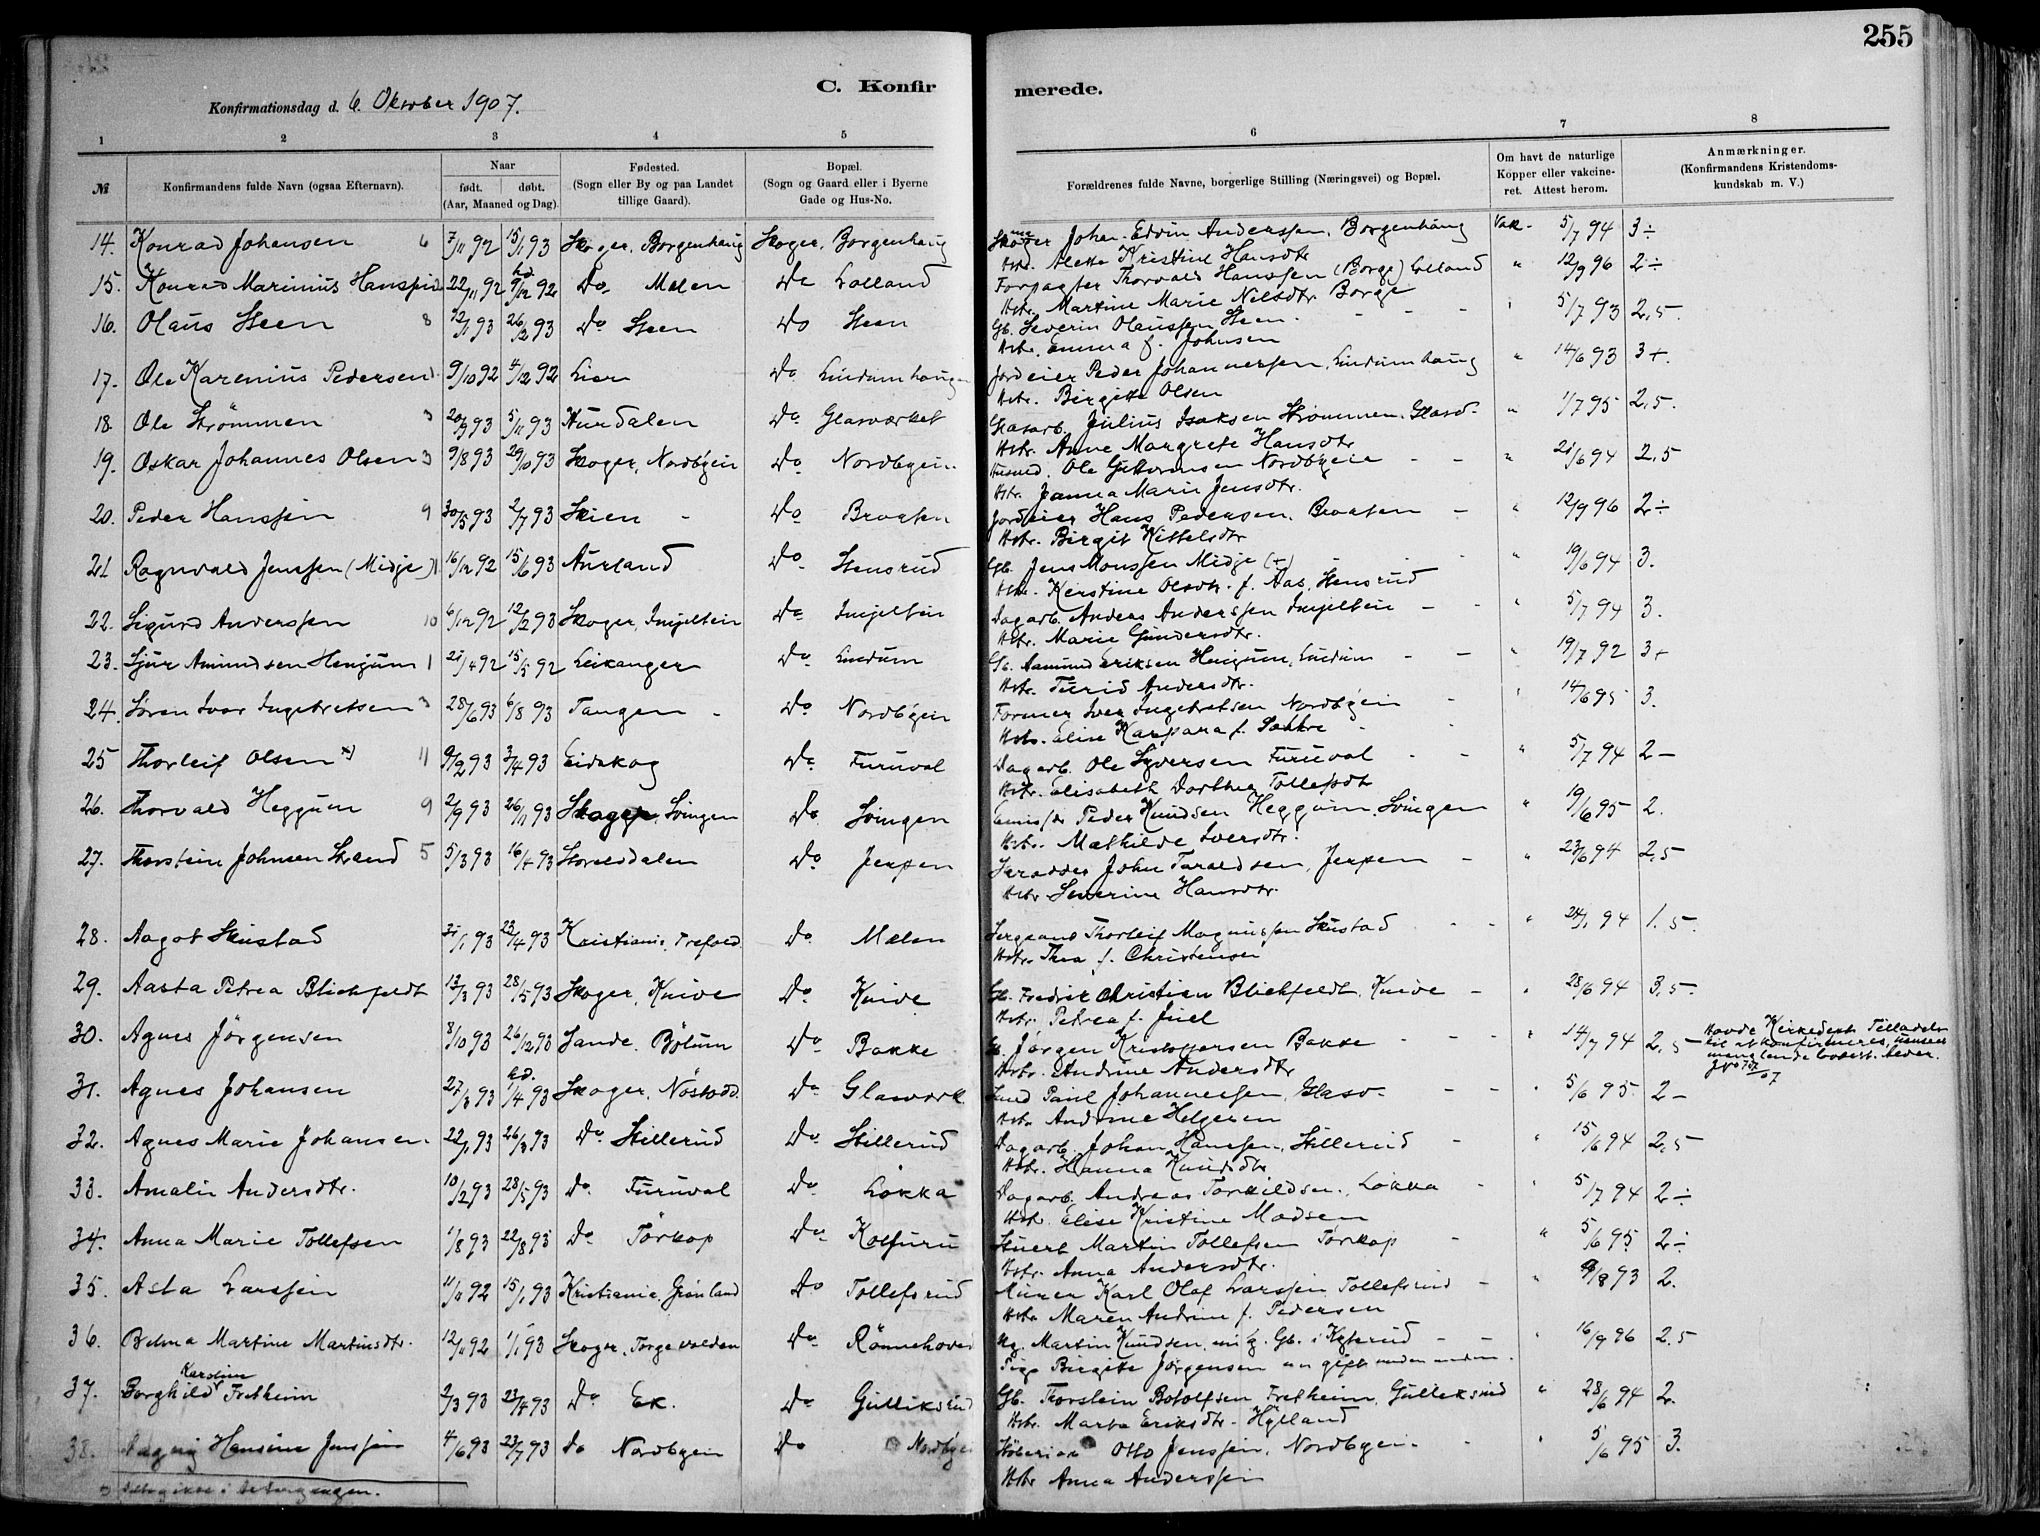 255
C. Konfir merede.
Konfirmationsdag d. 6. Oktober 1907.
1 2 3 4 5 6 7 8
№
Konfirmandens fulde Navn (ogsaa Efternavn).
Naar
født. døbt.
(Aar, Maaned og Dag).
Fødested.
(Sogn eller By og paa Landet
tillige Gaard).
Bopæl.
(Sogn og Gaard eller i Byerne
Gade og Hus-No.
Forældrenes fulde Navne, borgerlige Stilling (Næringsvei) og Bopæl.
Om havt de naturlige
Kopper eller vakcine-
ret. Attest herom.
Anmærkninger.
(Konfirmandens Kristendoms-
kundskab m. V.)
14. Konrad Johansen 6 7/11 92 15/1 93 Skoger, Borgenhaug Skoger, Borgenhaug Johan Edvin Anderssen, Borgenhaug Vak. 5/7 94 3÷
Hstr. Alette Kristine Hansdtr
15. Konrad Marinius Hanssen 22/11 92 hd. 9/12 92 Do Mælen Do Lolland Forpagter Thorvald Hanssen (Borge) Lolland " 12/9 96 2÷
Hstr. Martine Marie Nilsdtr. Borge
16. Olaus Steen 8 12/1 93 26/2 93 Do Steen Do Steen Gb. Severin Olaussen Steen. " 5/7 93 2,5.
Hstr. Emma f. Johnsen
17. Ole Karenius Pedersen 9/10 92 4/12 92 Lier Do Lindumhaugen Jordeier Peder Johannessen, Lindumhaug " 14/6 93 3+.
Hstr. Birgitte Olsen
18. Ole Strömmen 3 20/9 93 5/11 93 Hurdalen Do Glasværket Glasarb. Julius Isaksen Strömmen. Glasv. " 1/7 95 2,5.
Hstr. Anne Margrete Hansdtr
19. Oskar Johannes Olsen 3 9/8 93 29/10 93 Skoger, Nordbÿein Do Nordbÿein Husmd. Ole Guttormsen Nordbÿein " 21/6 94 2,5
Hstr. Janna Marie Jensdtr.
20. Peder Hanssen 9 30/5 93 2/7 93 Skien Do Braaten Jordeier Hans Pedersen, Braaten " 12/9 96 2÷
Hstr. Birgit Kittelsdtr
21 Ragnvald Jenssen (Midje) 16/12 92 15/6 93 Aurland Do Stensrud Gb. Jens Monssen Midje (+) " 19/6 94 3.
Hstr. Kerstine Olsdtr. f. Aas, Stensrud
22. Sigurd Anderssen 10 6/12 92 12/2 93 Skoger, Injeltein Do Injeltein Dagarb. Anders Anderssen Injeltein " 5/7 94 3.
Hstr. Marie Gundersdtr.
23. Sjur Amundsen Henjum 1 21/4 92 15/5 92 Leikanger Do Lindum Gb. Aamund Eriksen Henjum, Lindum " 19/7 92 3+
Hstr. Turid Andersdtr.
24. Sören Ivar Ingebretsen 3 28/6 93 6/8 93 Tangen Do Nordbÿein Former Iver Ingebretsen Nordbÿein " 14/6 95 3.
Hstr. Elise Kaspara f. Løkke
25 Thorleif Olsen *) 11 9/2 93 3/4 93 Eidskog Do Furuval Dagarb. Ole Syversen Furuval " 5/7 94 2-
Hstr. Elisabeth Dorthea Tollefsdt
26. Thorvald Heggum 9 2/9 93 26/11 93 Skoger, Svingen Do Svingen Peder Knudsen Heggum, Svingen " 19/6 95 2.
Hstr. Mathilde Iversdtr.
27. Thorstein Johnsen Strand 5 5/3 93 16/4 93 Storelvdalen Do Jerpen John Taraldsen, Jerpen " 23/6 94 2,5
Hstr Severine Hansdtr.
28. Aagot Skustad 31/1 93 23/4 93 Kristiania, Trefold. Do Mælen Sergeant Thorleif Magnussen Skustad " 24/1 94 1.5.
Hstr. Thea f. Christensen
29. Aasta Petrea Blichfeldt 13/3 93 28/5 93 Skoger, Knive Do Knive Gb. Fredrik Christian Blichfeldt, Knive " 28/6 94 3,5.
Hstr. Petrea f. Juel
30. Agnes Jörgensen 8/10 93 26/12 93 Sande, Bölum Do Bakke Gb. Jörgen Kristoffersen Bakke " 14/7 94 2,5 Havde Kirkedepts Tilladelse
til at konfirmeres, uanseet
manglende lovbest. Alder.
Hstr. Andrine Andersdtr
31. Agnes Johansen 27/3 93 hd. 1/4 93 Skoger, Nöstodd. Do Glasværk. Smed Paul Johannessen, Glasv. " 5/6 95. 2-
Hstr Andrine Helgesen
32. Agnes Marie Johansen. 22/1 93 26/3 93 Do Stillerud Do Stillerud Dagarb. Johan Hanssen, Stillerud " 15/6 94 2,5
Hstr. Hanna Knudsdtr
33. Amalie Andersdtr. 10/2 93 28/5 93 Do Furuval Do Løkka Dagarb. Andreas Torkildsen, Løkka " 5/7 94 2÷
Hstr. Elise Kristine Madsen
34. Anna Marie Tollefsen 1/8 93 22/8 93 Do Törkop Do Kolfuru Stuert Martin Tollefsen Törkop " 5/6 95 2÷
Hstr. Anna Andersdtr.
35. Asta Larssen 11/11 92 15/1 93 Kristiania, Grönland Do Tollefsrud Murer Karl Olaf Larssen Tollefsrud " 9/8 93 2.
Hstr. Maren Andrine f. Pedersen
36. Betna Martine Martinsdtr. 12/11 92 1/1 93 Skoger, Torgersvolden Do Rønnehoved Ug. Martin Knudsen, nu g. Gb. i Kÿterud " 16/9 96 2.5
Pige Birgitte Jørgensen nu gift med en anden.
37. Borghild Karoline Fretheim 2/3 93 23/4 93 Do Ek. Do Gulliksrud Gb. Thorstein Botolfsen Fretheim, Gulleksrud " 28/6 94 2.
Hstr. Marta Eriksdtr. Hÿlland
38. Dagny Hansine Jenssen 4/6 93 23/7 93 do Nordbÿein Do Nordbÿe Otto Jenssen, Nordbÿein. " 5/6 95 3.
Hstr Anna Anderssen